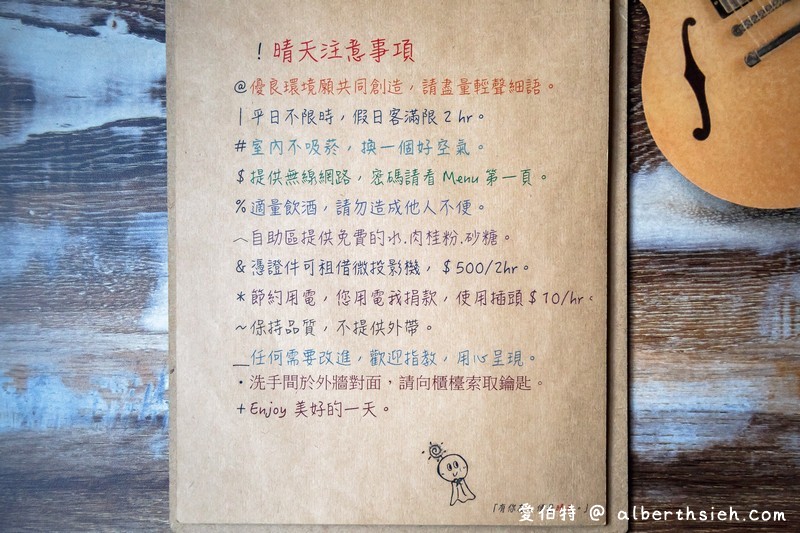 ! 晴天注意事項
@優良環境願共同創造，請盡量輕聲細語。
|平日不限時，假日客滿限 2 hr。
#室內不吸菸，換一個好空氣。
$提供無線網路，密碼請看 Menu 第一頁。
%適量飲酒，請勿造成他人不便。
︿自助區提供免費的水.肉桂粉.砂糖。
&憑證件可租借微投影機，$500/2hr。
*節約用電，您用電我捐款，使用插頭$10/hr。
~保持品質，不提供外帶。
＿任何需要改進，歡迎指教，用心呈現。
·洗手間於外牆對面，請向櫃檯索取鑰匙。
+Enjoy 美好的一天。
「有你
愛伯特 @ albertsieh.com